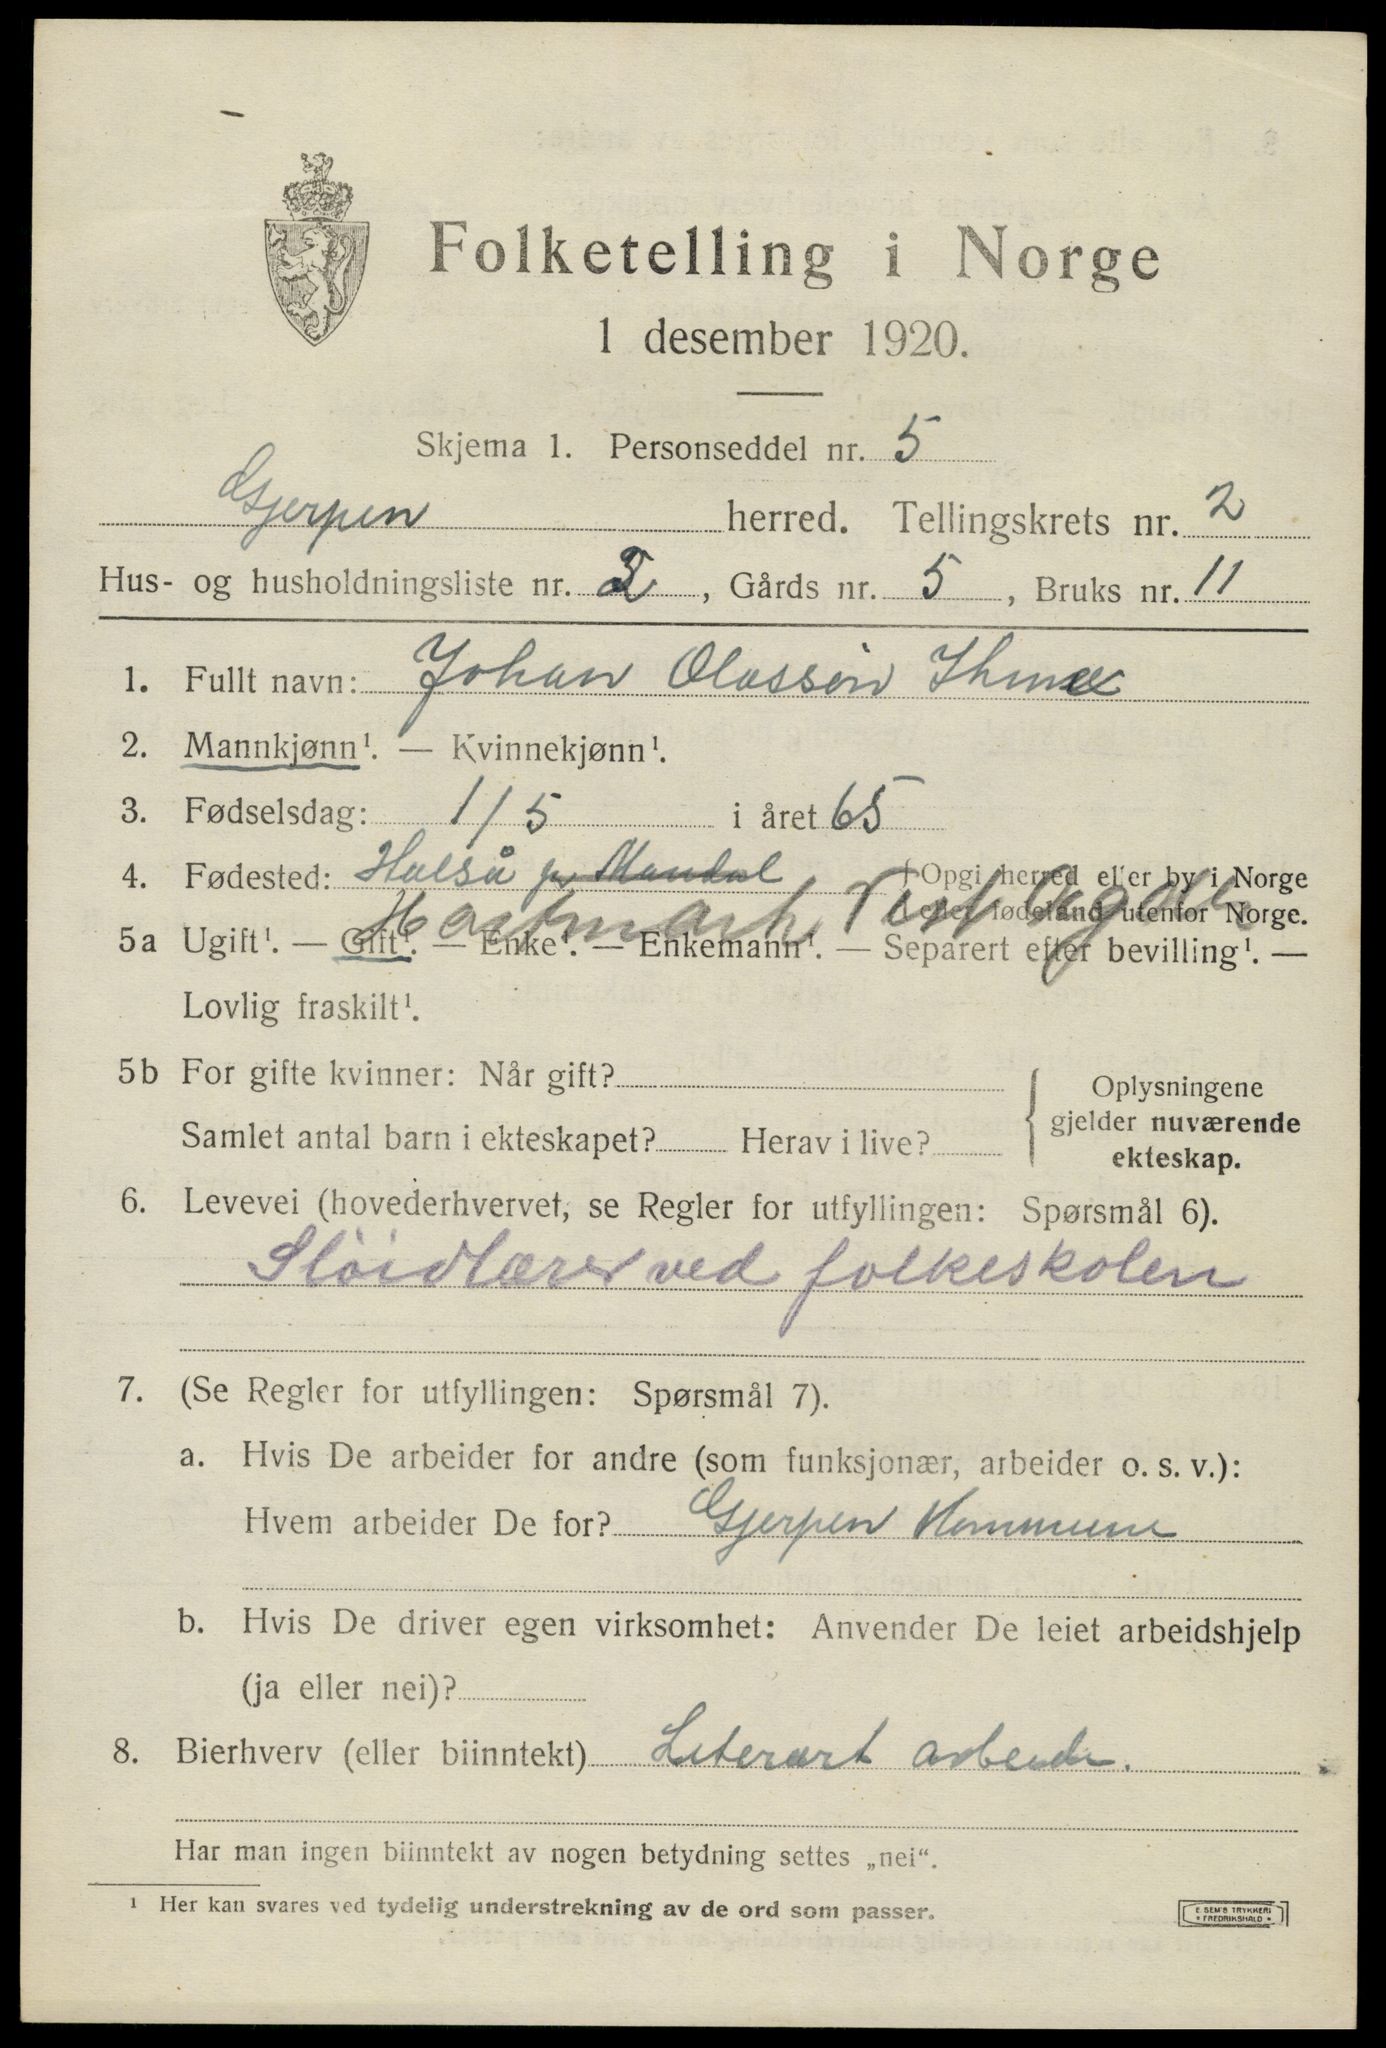 Folketelling i Norge
1 desember 1920.
Skjema 1. Personseddel nr. 5
Gjerpen herred. Tellingskrets nr. 2
Hus- og husholdningsliste nr. 2, Gårds nr. 5, Bruks nr. 11
1. Fullt navn: Johan Olassön
2. Mannkjønn¹. — Kvinnekjønn¹.
3. Fødselsdag: 1/5 i året 65
4. Fødested: Halså pr Mandal { Opgi herred eller by i Norge
Halsmark Vest Agder eller fødeland utenfor Norge.
5a Ugift¹. — Gift¹. — Enke¹. — Enkemann¹. — Separert efter bevilling¹. —
Lovlig fraskilt¹.
5b For gifte kvinner: Når gift?
Samlet antal barn i ekteskapet? Herav i live?
{ Oplysningene
gjelder nuværende
ekteskap.
6. Levevei (hovederhvervet, se Regler for utfyllingen: Spørsmål 6).
Slöidlærer ved folkeskolen
7. (Se Regler for utfyllingen: Spørsmål 7).
a. Hvis De arbeider for andre (som funksjonær, arbeider o. s. v.):
Hvem arbeider De for? Gjerpen Kommune
b. Hvis De driver egen virksomhet: Anvender De leiet arbeidshjelp
(ja eller nei)?
8. Bierhverv (eller biinntekt) Literært arbeide.
Har man ingen biinntekt av nogen betydning settes „nei“.
¹ Her kan svares ved tydelig understrekning av de ord som passer.
E. SEM'S TRYKKERI
FREDRIKSHALD